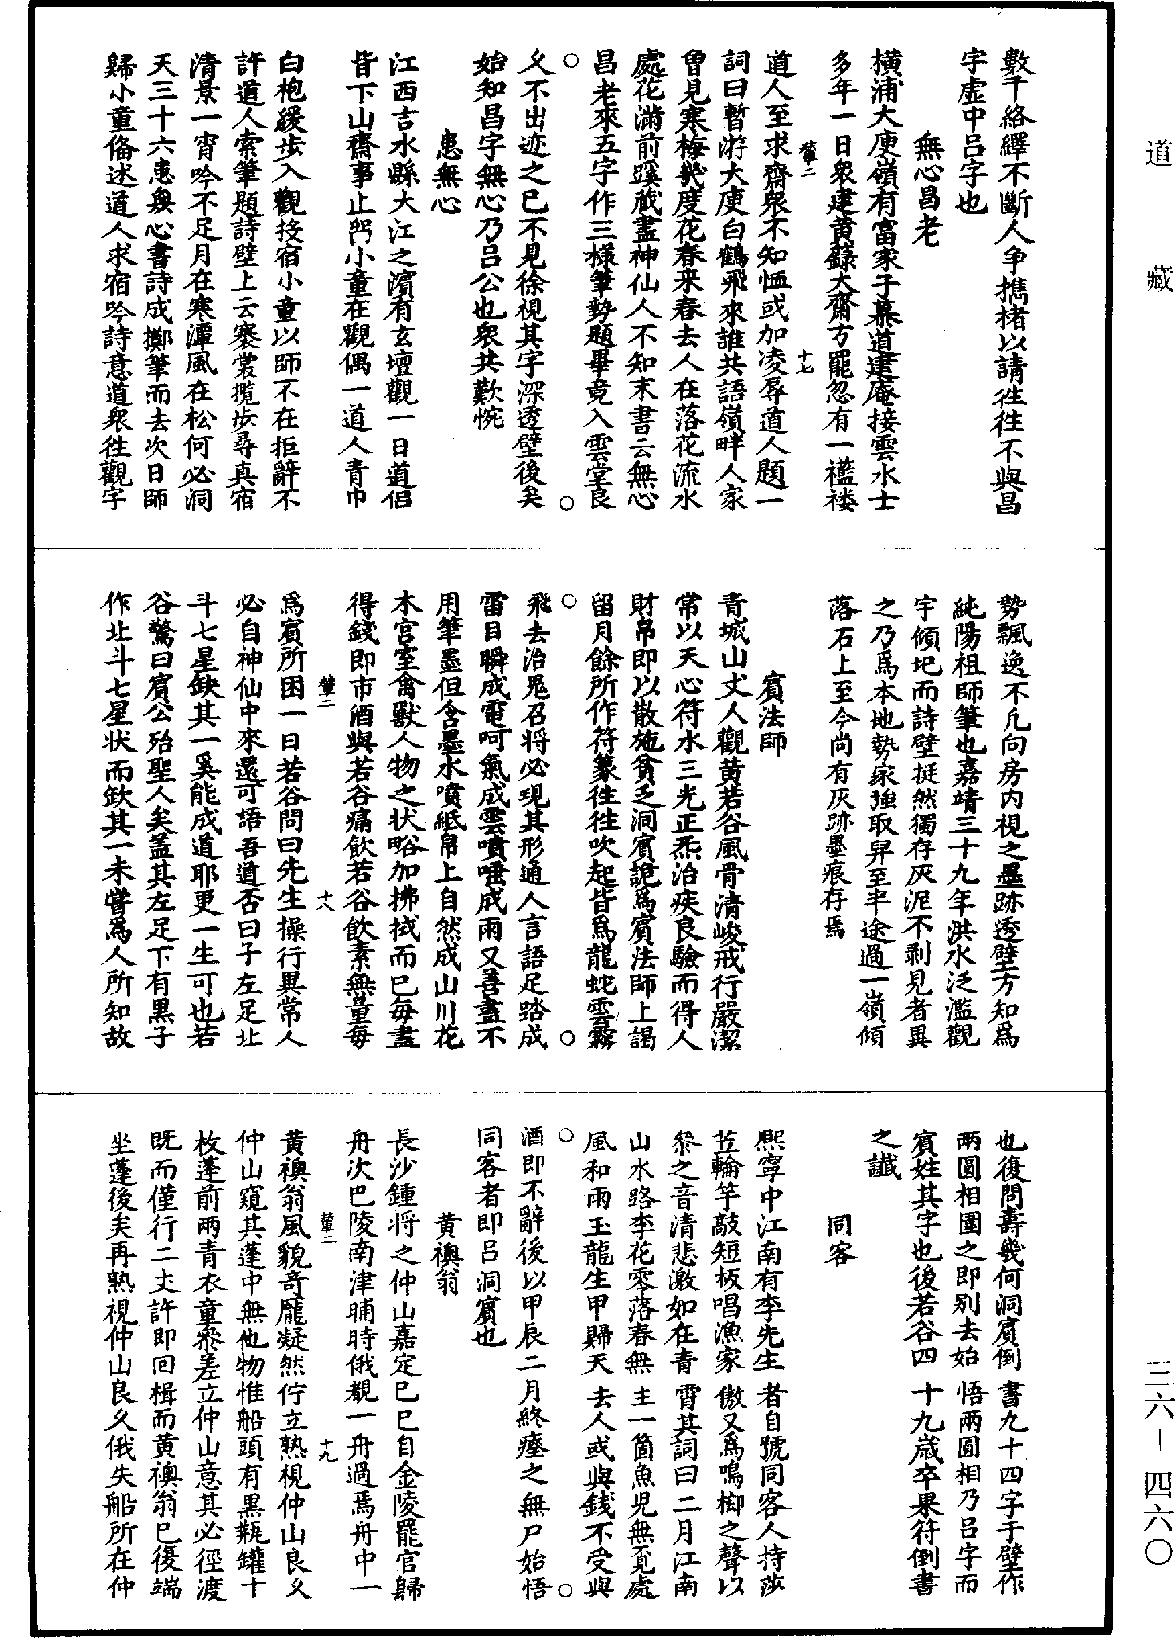 道藏
三六—四六〇
數千絡繹不斷人爭擕楮以請徃徃不與昌
字虛中呂字也
無心昌老
橫浦大庾嶺有富家子慕道建庵接雲水士
多年一日衆建黃籙大齋方罷忽有一襤褸
道人至求齋衆不知恤或加凌辱道人題一
詞曰暫游大庾白鶴飛來誰共語嶺畔人家
曾見寒梅幾度花春来春去人在落花流水
處花滿前蹊藏盡神仙人不知末書云無心
昌老來五字作三樣筆勢題畢竟入雲堂良
乆不出迹之已不見徐視其字深透壁後矣
始知昌字無心乃呂公也衆共歎惋
恵無心
江西吉水縣大江之濵有玄壇觀一日道侣
皆下山齋事止髣小童在觀偶一道人青巾
白袍緩步入觀投宿小童以師不在拒辭不
許道人索筆題詩壁上云褰裳攬步尋真宿
清景一宵吟不足月在寒潭風在松何必洞
天三十六恵無心書詩成擲筆而去次日師
歸小童俻述道人求宿吟詩意道衆徃觀字
勢飄逸不凢向房内視之墨跡透壁方知爲
純陽祖師筆也嘉靖三十九年洪水泛濫觀
宇傾圮而詩壁挺然獨存灰泥不剥見者異
之乃爲本地勢家強取舁至半途過一嶺傾
落石上至今尚有灰跡墨痕存焉
賓法師
青城山丈人觀黃若谷風骨清峻戒行嚴潔
常以天心符水三光正炁治疾良驗而得人
財帛即以散施貧乏洞賓詭爲賓法師上謁
留月餘所作符篆徃徃吹起皆爲龍蛇雲霧
飛去治鬼召将必現其形通人言語足踏成
雷目瞬成電呵氣成雲噴唾成雨又善畫不
用筆墨但含墨水噴紙帛上自然成山川花
木宫室禽獸人物之状略加拂拭而已每畫
得錢即市酒與若谷痛飲若谷飲素無量每
爲賓所困一日若谷問曰先生操行異常人
必自神仙中來還可語吾道否曰子左足北
斗七星缺其一奚能成道耶更一生可也若
谷驚曰賓公殆聖人矣葢其左足下有黑子
作北斗七星状而缺其一未嘗爲人所知故
也復問壽幾何洞賓倒書九十四字于壁作
兩圓相圍之即别去始悟兩圓相乃呂字而
賓姓其字也後若谷四十九歳卒果符倒書
之讖
同客
熙寧中江南有李先生者自號同客人持莎
笠輪竿敲短板唱漁家傲又爲鳴榔之聲以
叅之音清悲激如在青霄其詞曰二月江南
山水路李花零落春無主一箇魚児無覔處
風和雨玉龍生甲歸天去人或與錢不受與
酒即不辭後以甲辰二月終瘞之無尸始悟
同客者即呂洞賓也
黄襖翁
長沙鍾将之仲山嘉定己巳自金陵罷官歸
舟次巴陵南津晡時俄覩一舟過焉舟中一
黄襖翁風貌竒龐凝然佇立熟視仲山良乆
仲山窺其蓬中無他物惟船頭有黒瓶罐十
枚蓬前兩青衣童叅差立仲山意其必徑渡
既而僅行二丈許即回楫而黄襖翁已復端
坐蓬後矣再熟視仲山良乆俄失船所在仲